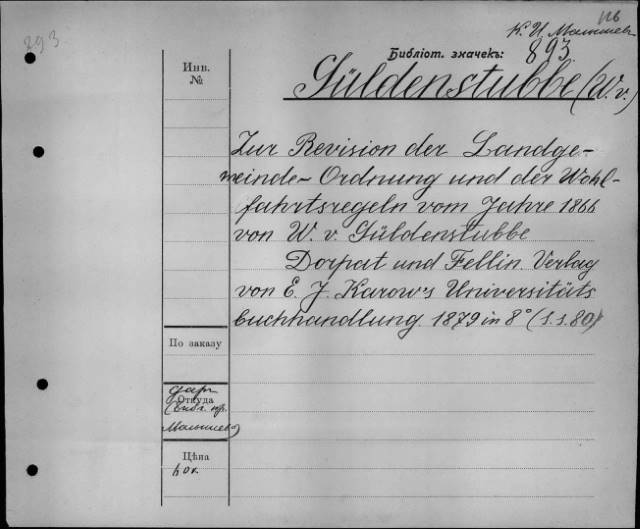 116
893
К. И. Малышев
Библіот. значекъ:
893.
Güldenstubbe (W. v.)
Инв.
№
Zur Revision der Landge-
meinde-Ordnung und der Wohl-
fahrtsregeln vom Jahre 1866
von W. v. Güldenstubbe
Dorpat und Fellin. Verlag
von E. J. Karow's Universitäts
buchhandlung. 1879 in 8° (S. s. 80)
По заказу
дар
Откуда
Малышева)
Цѣна